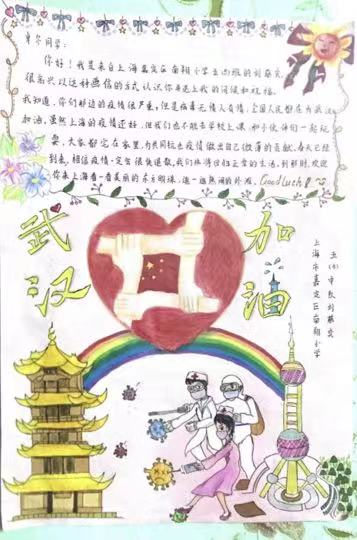 辛尔同学:
你好!我是来自上海嘉定区南翔小学五四班的刘
很高兴以这种画信的方式认识你并送上我的问候和祝福。
我知道,你们那边的疫情很严重,但是病毒无情人有情,全国人民都在为武汉
加油,虽然上海的疫情还好,但我们也不能去学校上课,和小伙伴们一起玩
耍,大家都宅在家里,为共同抗击疫情做出自己微薄的贡献,春天已经
到来,相信疫情一定会很快退散,我们从将回归正常的生活。到那时,欢迎
你来上海看一看美丽的东方明珠,逛一逛热闹的外滩,Good Luck!
武汉
加油
上海市嘉定区南翔小学